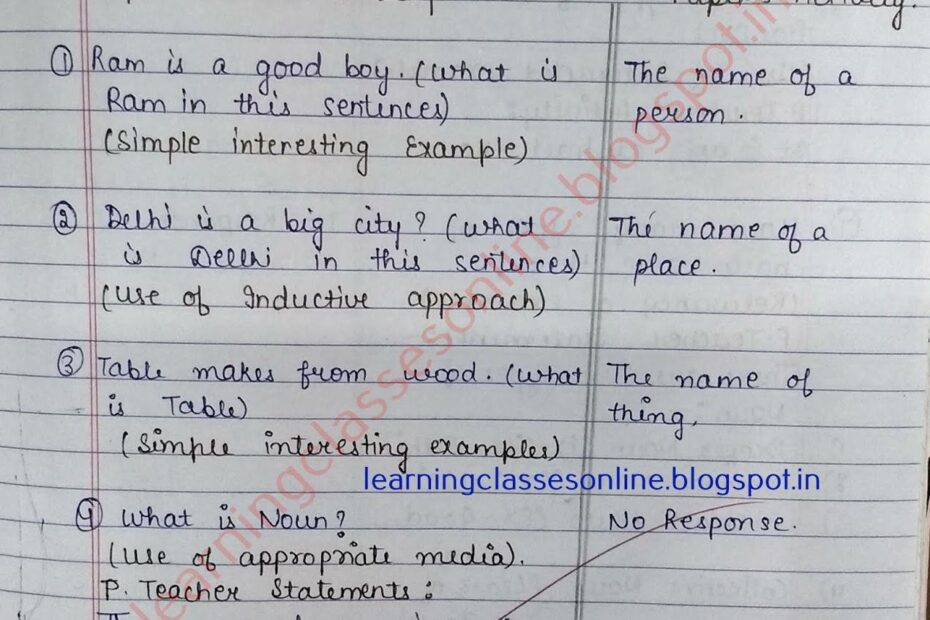 ① Ram is a good boy. (What is
Ram in this sentences)
(Simple interesting Example)
The name of a
person.
② Delhi is a big city? (What
is Delhi in this sentences)
(Use of Inductive approach)
The name of a
place.
③ Table makes from wood. (What
is Table)
(Simple interesting examples)
The name of
thing.
learningclassesonline.blogspot.in
④ What is Noun?
(Use of appropriate media).
P. Teacher Statements :
No Response.
learningclassesonline.blogspot.in